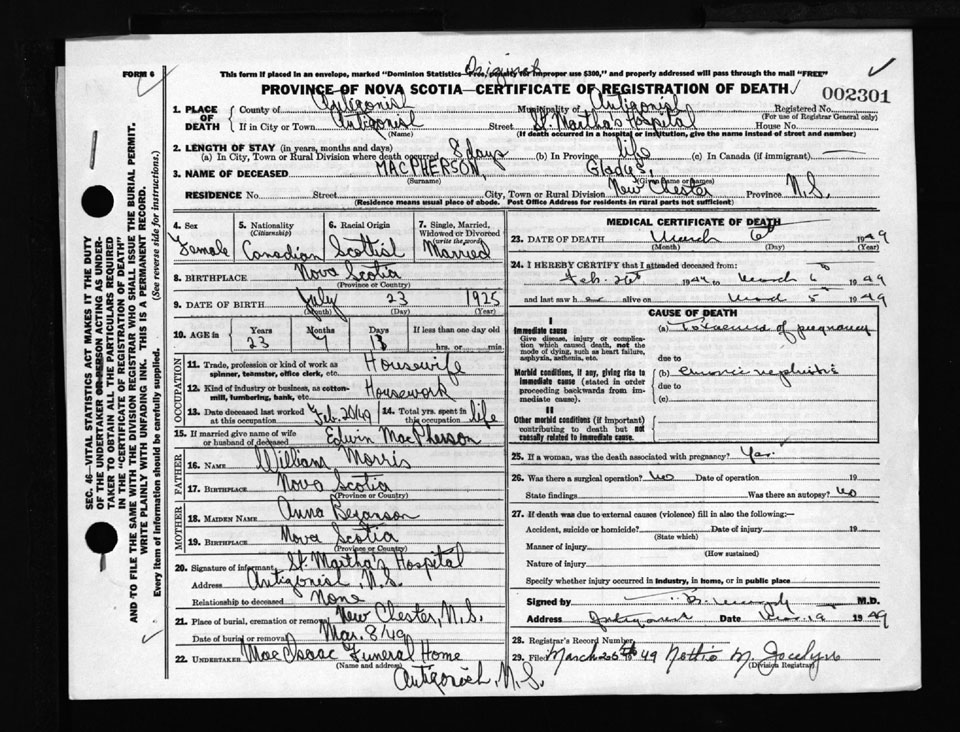 Original
FORM 6
This form if placed in an envelope, marked "Dominion Statistics—Free, penalty for improper use $300," and properly addressed will pass through the mail "FREE"
PROVINCE OF NOVA SCOTIA—CERTIFICATE OF REGISTRATION OF DEATH
002301
1. PLACE OF DEATH
County of Antigonish Municipality of Antigonish Registered No.
(For use of Registrar General only)
If in City or Town Antigonish Street St. Martha's Hospital House No.
(Name) (If death occurred in a hospital or institution, give the name instead of street and number)
2. LENGTH OF STAY (in years, months and days)
(a) In City, Town or Rural Division where death occurred 8 days (b) In Province life (c) In Canada (if immigrant)
3. NAME OF DECEASED MACPHERSON, Gladys,
(Surname) (Given name or names)
RESIDENCE No. Street City, Town or Rural Division New Chester Province N.S.
(Residence means usual place of abode. Post Office Address for residents in rural parts not sufficient)
4. Sex Female
5. Nationality (Citizenship) Canadian
6. Racial Origin Scottish
7. Single, Married, Widowed or Divorced (write the word) Married
8. BIRTHPLACE Nova Scotia
(Province or Country)
9. DATE OF BIRTH July 23 1925
(Month) (Day) (Year)
10. AGE in Years Months Days If less than one day old
23 7 hrs. or min.
OCCUPATION
11. Trade, profession or kind of work as spinner, teamster, office clerk, etc. Housewife
12. Kind of industry or business, as cotton-mill, lumbering, bank, etc. Housework
13. Date deceased last worked at this occupation Feb. 20/49
14. Total yrs. spent in this occupation life
15. If married give name of wife or husband of deceased Edwin MacPherson
FATHER
16. NAME William Morris
17. BIRTHPLACE Nova Scotia
(Province or Country)
MOTHER
18. MAIDEN NAME Anna
19. BIRTHPLACE Nova Scotia
(Province or Country)
20. Signature of informant St. Martha's Hospital
Address Antigonish, N.S.
Relationship to deceased None
21. Place of burial, cremation or removal New Chester, N.S.
Date of burial or removal Mar. 8/49
22. UNDERTAKER MacIsaac Funeral Home
(Name and address)
Antigonish, N.S.
MEDICAL CERTIFICATE OF DEATH
23. DATE OF DEATH March 6th 1949
(Month) (Day) (Year)
24. I HEREBY CERTIFY that I attended deceased from:
Feb. 26th 1949 to March 6 1949
and last saw her alive on March 5 1949
CAUSE OF DEATH
I
Immediate cause
Give disease, injury or complication which caused death, not the mode of dying, such as heart failure, asphyxia, asthenia, etc.
(a) Toxaemia of pregnancy
due to
Morbid conditions, if any, giving rise to immediate cause (stated in order proceeding backwards from immediate cause).
(b) Chronic nephritis
due to
(c)
II
Other morbid conditions (if important) contributing to death but not causally related to immediate cause.
25. If a woman, was the death associated with pregnancy? Yes.
26. Was there a surgical operation? No Date of operation 19
State findings Was there an autopsy? No
27. If death was due to external causes (violence) fill in also the following:—
Accident, suicide or homicide? Date of injury 19
(State which)
Manner of injury
(How sustained)
Nature of injury
Specify whether injury occurred in industry, in home, or in public place
Signed by M.D.
Address Antigonish Date 1949
28. Registrar's Record Number
29. Filed March 1949 Nettie M. Jocelyn
(Division Registrar)
SEC. 46—VITAL STATISTICS ACT MAKES IT THE DUTY
OF THE UNDERTAKER OR PERSON ACTING AS UNDER-
TAKER TO OBTAIN ALL THE PARTICULARS REQUIRED
IN THE "CERTIFICATE OF REGISTRATION OF DEATH"
AND TO FILE THE SAME WITH THE DIVISION REGISTRAR WHO SHALL ISSUE THE BURIAL PERMIT.
WRITE PLAINLY WITH UNFADING INK. THIS IS A PERMANENT RECORD.
Every item of information should be carefully supplied. (See reverse side for instructions.)